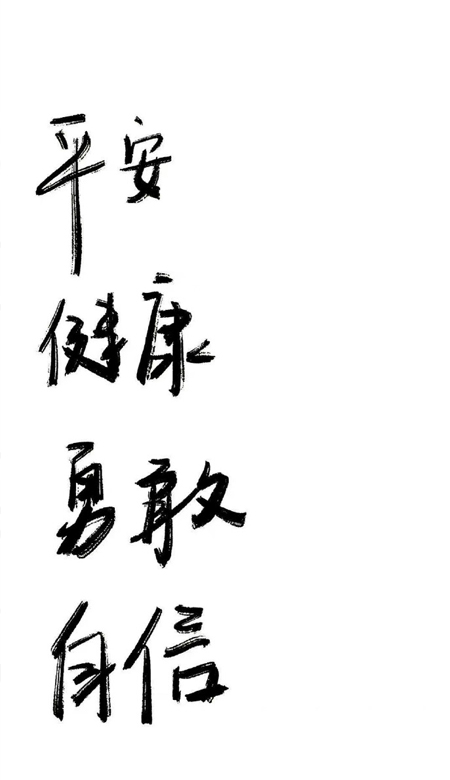 平安
健康
勇敢
自信